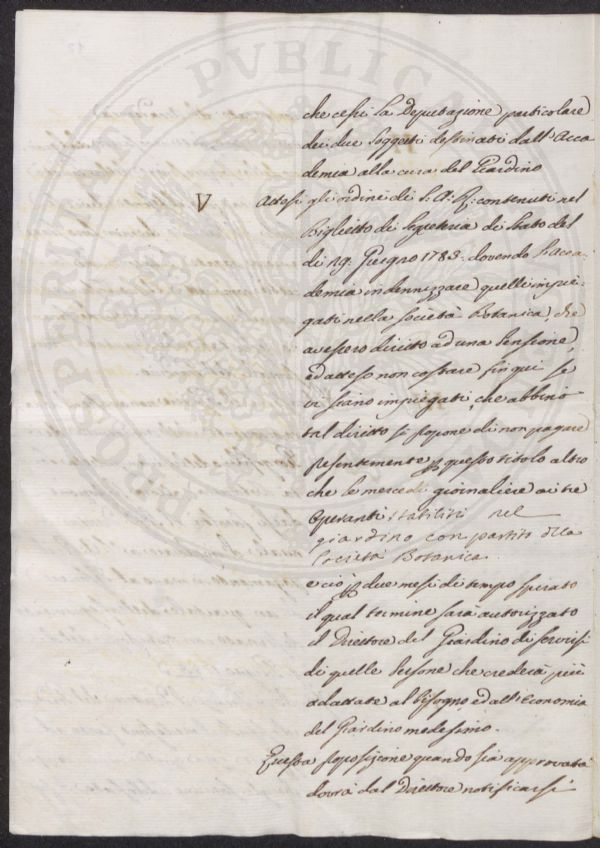 PROSPERITATI PUBLICAE
che cessi la Deputazione particolare
dei due Soggetti destinati dall'Acca
demia alla cura del Giardino
V
Attesi gli ordini di S. A. R. contenuti nel
Biglietto di Segreteria di Stato del
di 29. Giugno 1783. dovendo l'Acca-
demia indennizzare quelli impie-
gati nella Società Botanica, che
avessero diritto ad una Pensione,
ed atteso non costare fin qui se
vi siano impiegati, che abbino
tal diritto si propone di non pagare
presentemente p questo titolo altro
che le mercedi giornaliere ai tre
Operanti stabiliti nel
giardino con partito della
Società Botanica.
e ciò p due mesi di tempo spirato
il qual termine sarà autorizzato
il Direttore del Giardino di servirsi
di quelle Persone che crederà più
adattate al bisogno ed all'Economia
del Giardino medesimo.
Questa proposizione quando sia approvata
dovrà dal Direttore notificarsi